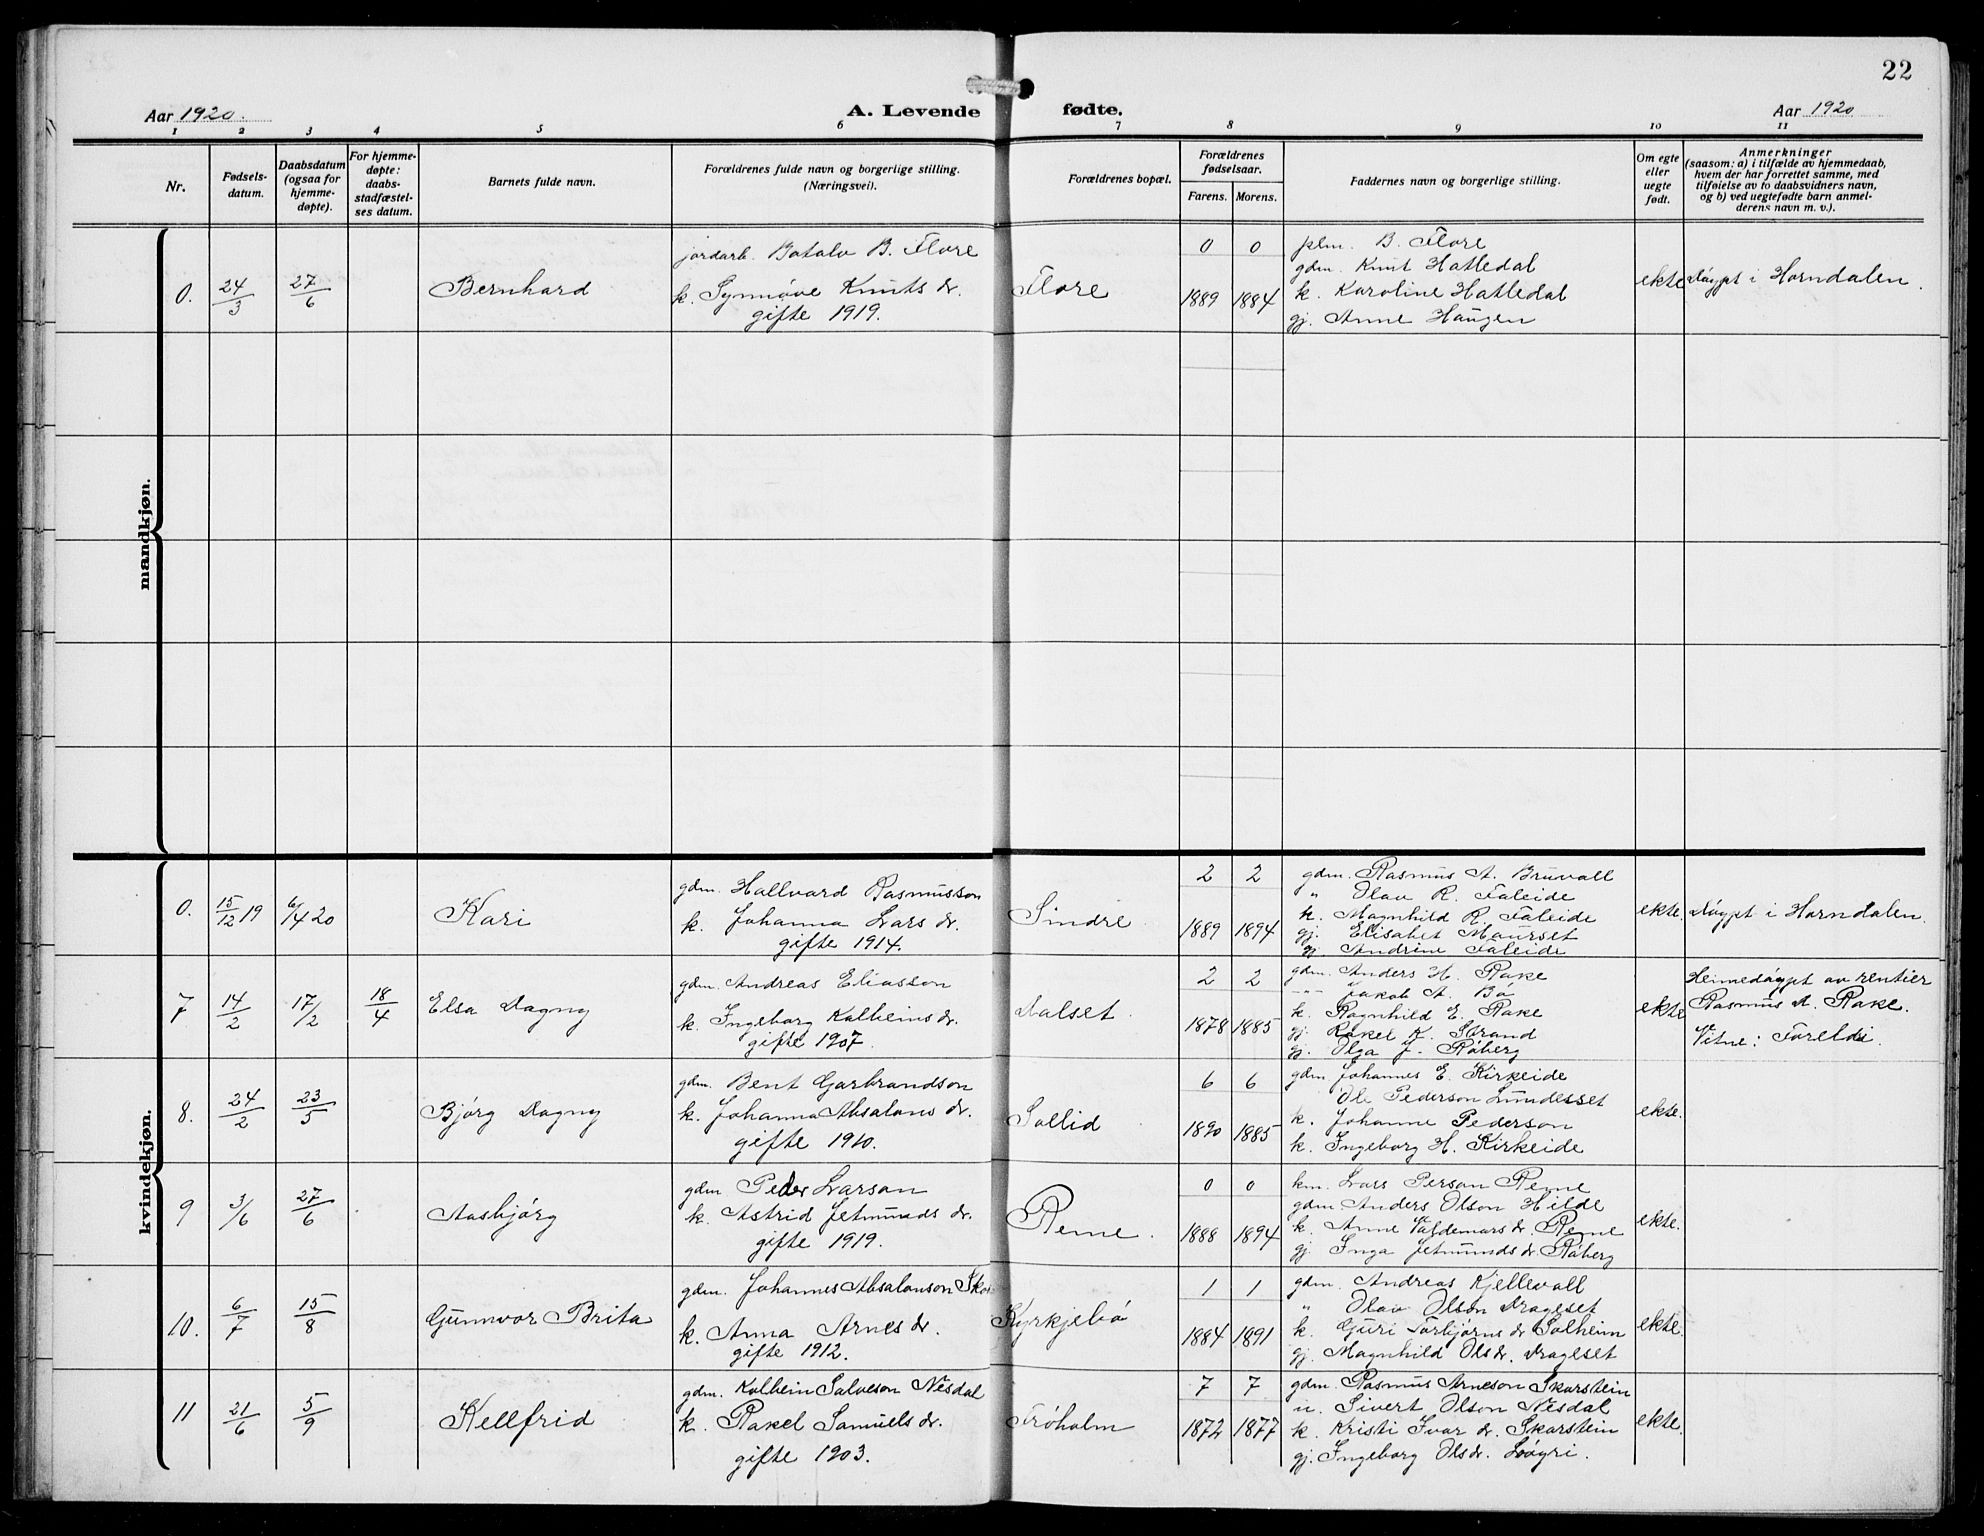 22
Aar 1920.
A. Levende fødte.
Aar 1920
1 2 3 4 5 6 7 8 9 10 11
Nr.
Fødsels-
datum.
Daabsdatum
(ogsaa for
hjemme-
døpte).
For hjemme-
døpte:
daabs-
stadfæstel-
ses datum.
Barnets fulde navn.
Forældrenes fulde navn og borgerlige stilling.
(Næringsvei).
Forældrenes bopæl.
Forældrenes
fødselsaar.
Farens. Morens.
Faddernes navn og borgerlige stilling.
Om egte
eller
uegte
født.
Anmerkninger
(saasom: a) i tilfælde av hjemmedaab,
hvem der har forrettet samme, med
tilføielse av to daabsvidners navn,
og b) ved uegtefødte barn anmel-
derens navn m. v.).
mandkjøn.
0. 24/3 27/6 Bernhard
jordarb. Botolv B. Flore
k. Synnøve Knuts dr.
gifte 1919.
Flore
0 0
1889 1884
plm. B. Flore
gdm. Knut Hatledal
k. Karoline Hatledal
gj. Anne Haugen
ekte
Døypt i Horndalen.
kvindekjøn.
0. 15/12 19 6/14 20 Kari
gdm. Hallvard Rasmusson
k. Johanna Lars dr.
gifte 1914.
Sindre
2 2
1889 1894
gdm. Rasmus A. Bruvoll
" Olav R. Faleide
k. Magnhild R. Faleide
gj. Elisabet Maurset
gj. Andrine Faleide
ekte.
Døypt i Horndalen.
7 14/2 17/2 18/4 Elsa Dagny
gdm. Andreas Eliasson
k. Ingeborg Kolbeins dr.
gifte 1907.
Dalset.
2 2
1878 1885
gdm. Anders H. Rake
-"- Jakob A. Bø
k. Ragnhild E. Rake
gj. Rakel K. Strand
gj. Olga J. Røberg
ekte
Heimedøypt av rentier
Rasmus A. Rake.
Vitne: Foreldri.
8. 24/2 23/5 Bjørg Dagny
gdm. Bent Garbrandson
k. Johanna Absalons dr.
gifte 1910.
Sollid
6 6
1890 1885
gdm. Johannes E. Kirkeide
" Ole Pederson Lundesset
k. Johanne Pederson
k. Ingeborg H. Kirkeide
ekte.
9 3/6 27/6 Aasbjørg
gdm Peder Larson
k. Astrid Jetmunds dr.
gifte 1919.
Reme.
0 0
1888 1894
km. Lars Person Reme
gdm Anders Olson Hilde
k. Anne Valdemars dr. Reme
gj. Inga Jetmunds dr. Røberg
ekte.
10. 6/7 15/8 Gunnvor Brita
gdm. Johannes Absalonson
k. Anna Arnes dr.
gifte 1912.
Kyrkjebø
1 1
1884 1891
gdm. Andreas Kjellevoll
" Olav Olson Drageset
k. Guri Torbjørns dr. Solheim
gj. Magnhild Ols dr. Drageset
ekte.
11 21/6 5/9 Kellfrid
gdm. Kolbein Salveson Nesdal
k. Rakel Samuels dr.
gifte 1903.
Trøholm
7 7
1872 1877
gdm. Rasmus Arneson Skarstein
u. Sivert Olson Nesdal
k. Kristi Ivar dr. Skarstein
gj. Ingeborg Ols dr.
ekte.